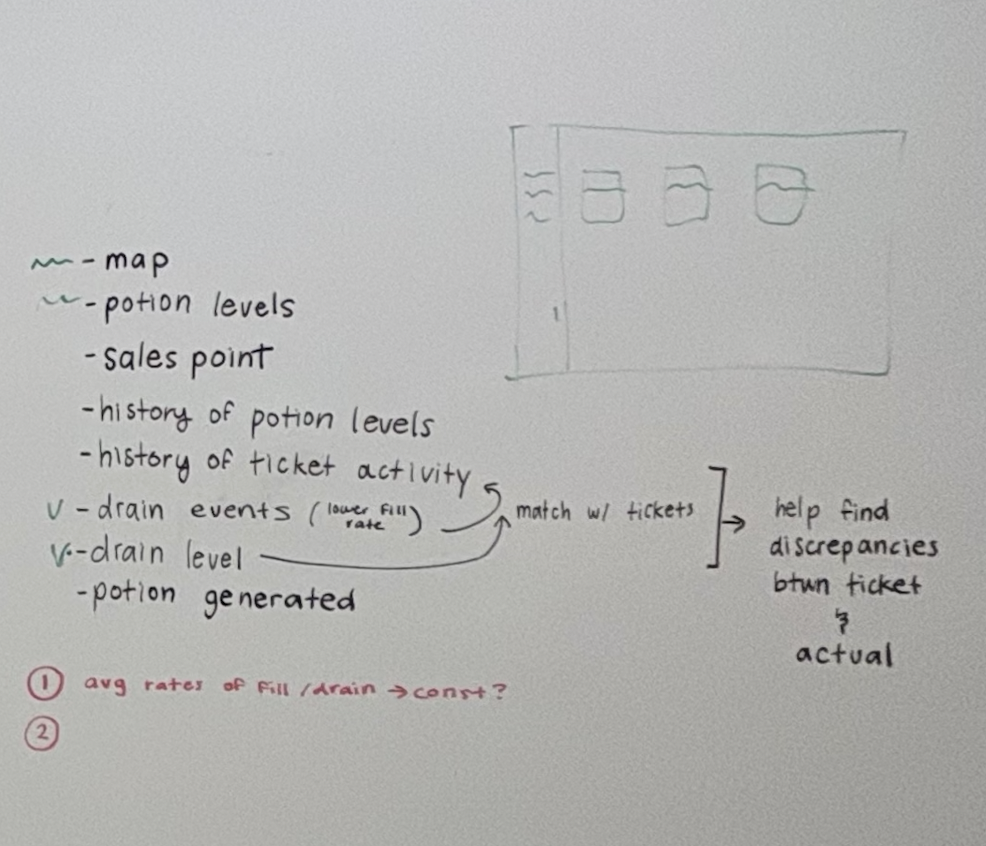 - map
- potion levels
- sales point
- history of potion levels
- history of ticket activity
v - drain events (lower fill rate)
match w/ tickets
v - drain level
- potion generated
help find
discrepancies
btwn ticket
&
actual
1 avg rates of fill/drain → const?
2